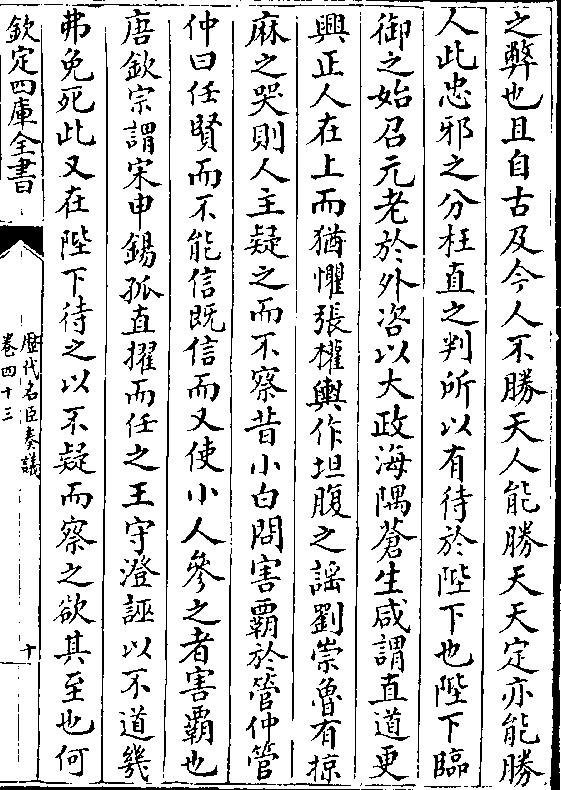 之弊也且自古及今人不勝天人能勝天天定亦能勝
人此忠邪之分枉直之判所以有待於陛下也陛下臨
御之始召元老於外咨以大政海隅蒼生咸謂直道更
興正人在上而猶懼張權輿作坦腹之謡劉崇魯有掠
麻之哭則人主疑之而不察昔小白問害霸於管仲管
仲曰任賢而不能信既信而又使小人參之者害霸也
唐欽宗謂宋申錫孤直擢而任之王守澄誣以不道幾
弗免死此又在陛下待之以不疑而察之欲其至也何
欽定四庫全書
歷代名臣奏議
卷四十三
十